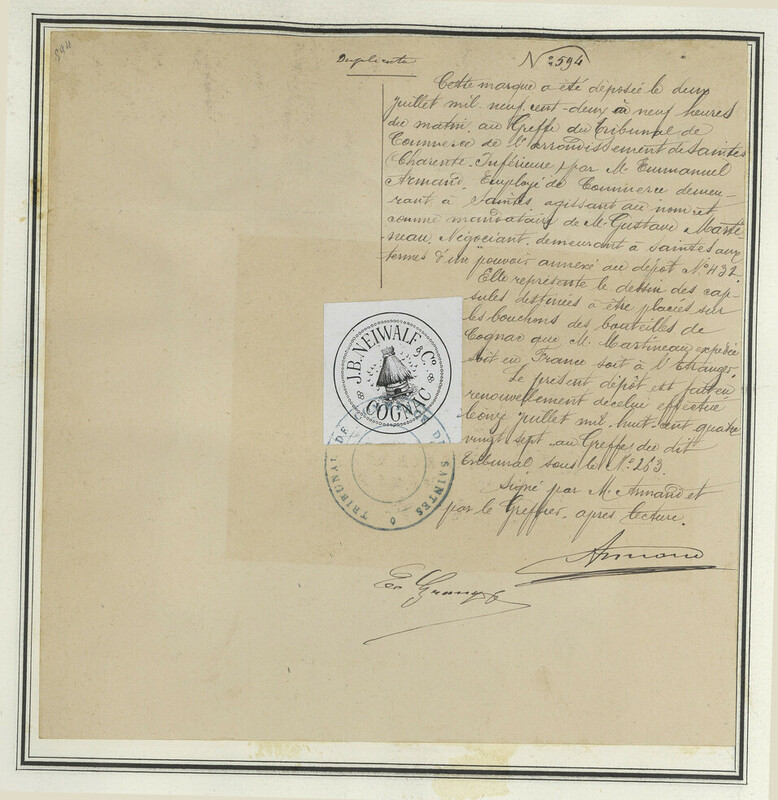 594
Duplicata
N° 594
Cette marque a été déposée le deux
juillet mil neuf cent deux à neuf heures
du matin, au Greffe du Tribunal de
Commerce de l'arrondissement de Saintes
(Charente Inférieure) par M. Emmanuel
Armand, Employé de Commerce demeu-
rant à Saintes, agissant au nom et
comme mandataire de M. Gustave Marti-
neau, Négociant, demeurant à Saintes aux
termes d'un pouvoir annexé au dépot N° 432.
Elle représente le dessin des cap-
sules destinées à être placées sur
les bouchons des bouteilles de
Cognac que M. Martineau expédie
soit en France soit à l'Etranger.
Le présent dépôt est fait en
renouvellement de celui effectué
le onze juillet mil huit cent quatre
vingt sept au Greffe du dit
tribunal sous le N° 253.
Signé par M. Armand et
par le Greffier, après lecture.
J.B. NEIWALF & Co
COGNAC
TRIBUNAL DE
DE SAINTES
Armand